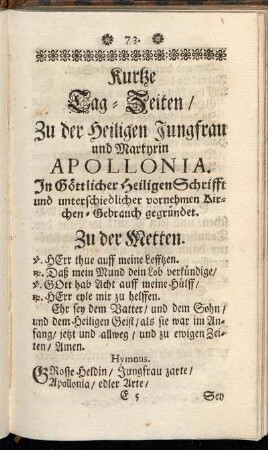 73.
Kurtze
Tag-Zeiten/
Zu der Heiligen Jungfrau
und Martyrin
APOLLONIA.
In Göttlicher Heiligen Schrifft
und unterschiedlicher vornehmen Kir-
chen-Gebrauch gegründet.
Zu der Metten.
℣. HErr thue auff meine Lefftzen.
℟. Daß mein Mund dein Lob verkündige/
℣. GOtt hab Acht auff meine Hülff/
℟. HErr eyle mir zu helffen.
Ehr sey dem Vatter/ und dem Sohn/
und dem Heiligen Geist/ als sie war im An-
fang/ jetzt und allweg/ und zu ewigen Zei-
ten/ Amen.
Hymnus.
GRosse Heldin/ Jungfrau zarte/
Apollonia/ edler Arte/
E 5 Sey